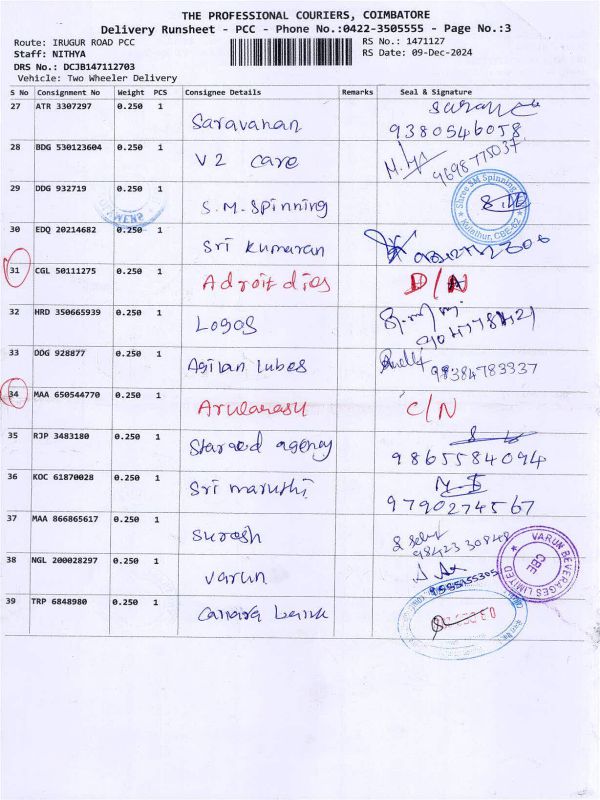 THE PROFESSIONAL COURIERS, COIMBATORE
Delivery Runsheet - PCC - Phone No.:0422-3505555 - Page No.:3
Route: IRUGUR ROAD PCC RS No.: 1471127
Staff: NITHYA RS Date: 09-Dec-2024
DRS No.: DCJB147112703
Vehicle: Two Wheeler Delivery
S No Consignment No Weight PCS Consignee Details Remarks Seal & Signature
27 ATR 3307297 0.250 1 Saravanan 9380546058
28 BDG 530123604 0.250 1 V2 care 9698775037
29 DDG 932719 0.250 1 S.M. Spinning Shree SM Spinning Kulathur, CBE-62
30 EDQ 20214682 0.250 1 Sri Kumaran
31 CGL 50111275 0.250 1 Adroit dies D/N
32 HRD 350665939 0.250 1 Logos
33 DDG 928877 0.250 1 Agilan lubes 98384783337
34 MAA 650544770 0.250 1 Arularasu C/N
35 RJP 3483180 0.250 1 agency 9865584094
36 KOC 61870028 0.250 1 Sri maruthi 9790274567
37 MAA 866865617 0.250 1 Suresh 9842330848
38 NGL 200028297 0.250 1 Varun VARUN BEVERAGES LIMITED CBE
39 TRP 6848980 0.250 1 Canara bank